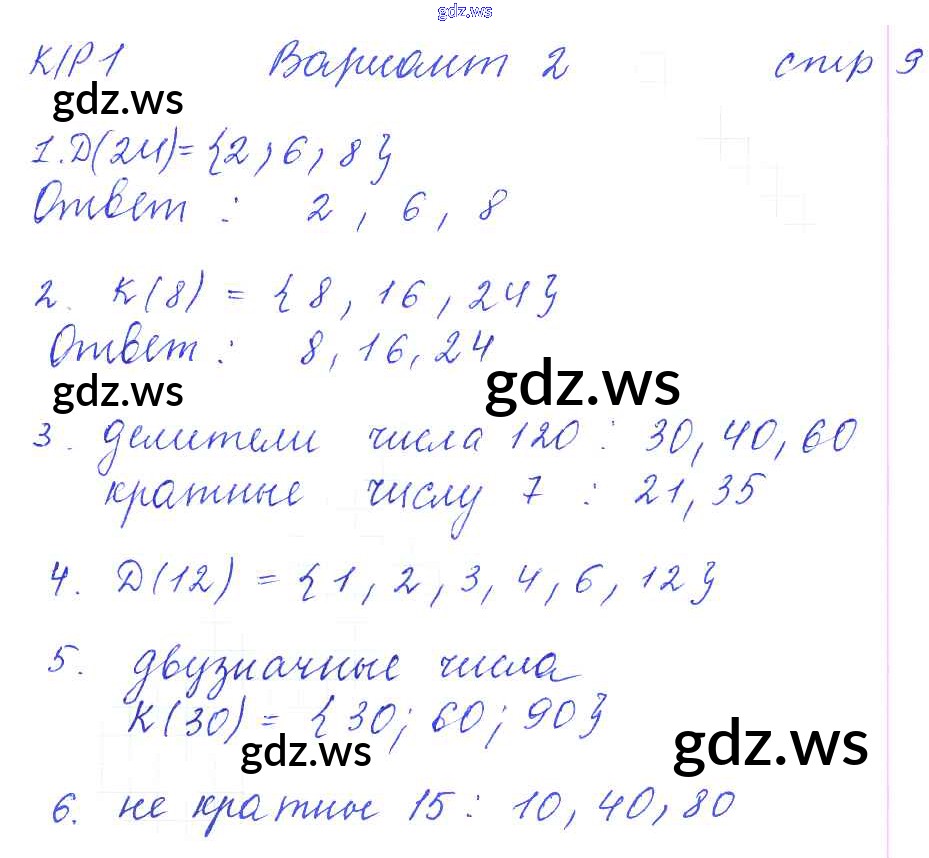 gdz.ws
К/Р 1 Вариант 2 стр 9
gdz.ws
1. Д(24)= {2, 6, 8}
Ответ : 2, 6, 8
2. К(8) = {8, 16, 24}
Ответ : 8, 16, 24
gdz.ws
gdz.ws
3. делители числа 120 : 30, 40, 60
кратные числу 7 : 21, 35
4. Д(12) = {1, 2, 3, 4, 6, 12}
5. двузначные числа
К(30) = {30; 60; 90}
gdz.ws
gdz.ws
6. не кратные 15 : 10, 40, 80